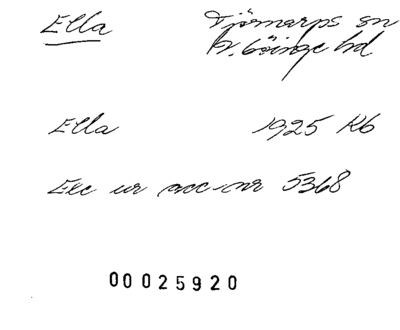 Ella Tjörnarps sn
V. Göinge hd
Ella 1925 Kb
Exc ur acc-nr 5368
00025920